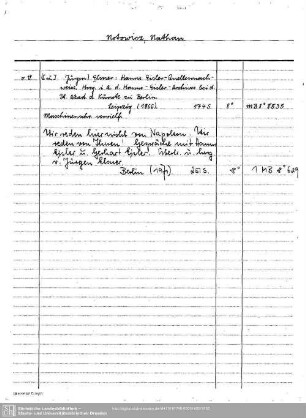 Notowicz, Nathan
u. Jürgen Elsner: Hanns Eisler-Quellennach-
weise. Hrsg. i. A. d. Hanns-Eisler-Archivs bei d.
Dt. Akad. d. Künste zu Berlin.
Leipzig (1966). 174 S. 8° MB 8° 8535
Maschinenschr. vervielf.
Wir reden hier nicht von Napoleon. Wir
reden von Ihnen! Gespräche mit Hanns
Eisler u. Gerhart Eisler. Übertr. u. hrsg.
v. Jürgen Elsner.
Berlin (1971) 8° 1 MB 8° 629